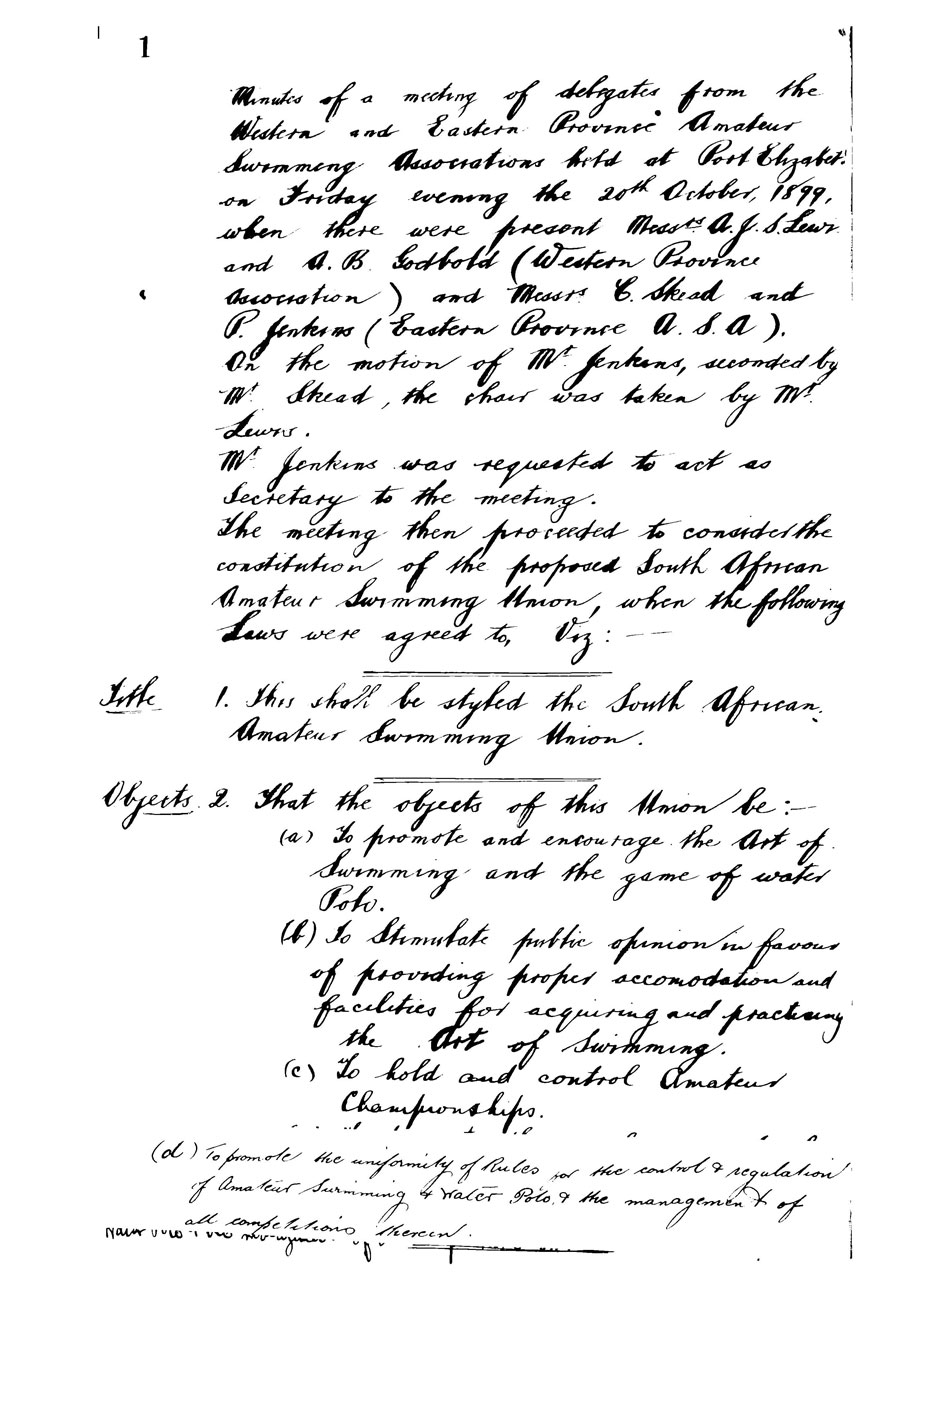 1
Minutes of a meeting of delegates from the
Western and Eastern Province Amateur
Swimming Associations held at Port Elizabet
on Friday evening the 20th October, 1899,
when there were present Messrs A. J. S. Lewi
and A. B. Godbold (Western Province
Association) and Messrs C. Skead and
P. Jenkins (Eastern Province A. S. A).
On the motion of Mr Jenkins, seconded by
Mr Skead, the chair was taken by Mr
Lewis.
Mr Jenkins was requested to act as
Secretary to the meeting.
The meeting then proceeded to consider the
constitution of the proposed South African
Amateur Swimming Union, when the following
Laws were agreed to, Viz: —
Title 1. This shall be styled the South African
Amateur Swimming Union.
Objects 2. That the objects of this Union be:—
(a) To promote and encourage the Art of
Swimming and the game of water
Polo.
(b) To Stimulate public opinion in favour
of providing proper accomodation and
facilities for acquiring and practising
the Art of Swimming.
(c) To hold and control Amateur
Championships.
(d) To promote the uniformity of Rules for the control & regulation
of Amateur Swimming & Water Polo & the management of
all competitions therein.